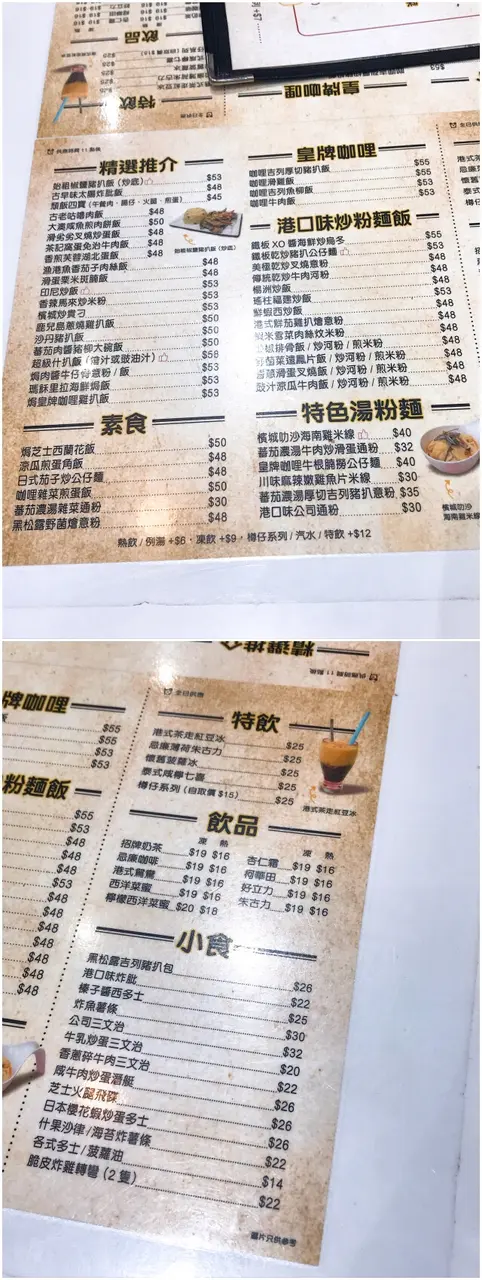 飲品
特飲
皇牌咖哩
$53
供應時間 11 點後
精選推介
始祖椒鹽豬扒飯 (炒底) $53
古早味太陽炸肶飯 $48
頹飯四寶 (午餐肉、腸仔、火腿、煎蛋) $45
古老咕嚕肉飯 $48
大澳咸魚煎肉餅飯 $50
滑劣劣叉燒炒蛋飯 $48
茶記窩蛋免治牛肉飯 $48
香煎芙蓉湖北蛋飯 $48
漁港魚香茄子肉絲飯 $48
滑蛋粟米斑腩飯 $48
印尼炒飯 $53
香辣馬來炒米粉 $48
檳城炒貴刁 $50
鹿兒島蔥燒雞扒飯 $50
沙丹豬扒飯 $50
蕃茄肉醬豬柳大碗飯 $50
超級什扒飯 (燒汁或豉油汁) $58
焗肉醬牛仔骨意粉 / 飯 $53
瑪穌里拉海鮮焗飯 $53
焗皇牌咖哩雞扒飯 $53
始祖椒鹽豬扒飯 (炒底)
素食
焗芝士西蘭花飯 $50
涼瓜煎蛋角飯 $48
日式茄子炒公仔麵 $48
咖哩雜菜煎蛋飯 $50
蕃茄濃湯雜菜通粉 $30
黑松露野菌燴意粉 $48
皇牌咖哩
咖哩吉列厚切豬扒飯 $55
咖哩滑雞飯 $55
咖哩吉列魚柳飯 $53
咖哩牛肉飯 $53
港口味炒粉麵飯
鐵板 XO 醬海鮮炒烏冬 $55
鐵板乾炒豬扒公仔麵 $53
美極乾炒叉燒意粉 $48
傳統乾炒牛肉河粉 $48
楊洲炒飯 $48
瑤柱福建炒飯 $48
鮮蝦西炒飯 $53
港式鮮茄雞扒燴意粉 $48
雪菜肉絲炆米粉 $48
椒排骨飯 / 炒河粉 / 煎米粉 $48
菜遠鳳片飯 / 炒河粉 / 煎米粉 $48
滑蛋叉燒飯 / 炒河粉 / 煎米粉 $48
豉汁涼瓜牛肉飯 / 炒河粉 / 煎米粉 $48
特色湯粉麵
檳城叻沙海南雞米線 $40
蕃茄濃湯牛肉炒滑蛋通粉 $32
皇牌咖哩牛根腩撈公仔麵 $40
川味麻辣嫩雞魚片米線 $30
蕃茄濃湯厚切吉列豬扒意粉 $35
港口味公司通粉 $30
檳城叻沙
海南雞米線
熱飲 / 例湯 +$6，凍飲 +$9，樽仔系列 / 汽水 / 特飲 +$12
精選推介
供應時間 11 點後
牌咖哩
$55
$55
$53
$53
粉麵飯
$55
$53
$48
$48
$48
$48
$53
$48
$48
$48
$48
$48
$48
全日供應
特飲
港式茶走紅豆冰 $25
忌廉薄荷朱古力 $25
懷舊菠蘿冰 $25
泰式咸檸七喜 $25
樽仔系列 (自取價 $15) $25
港式茶走紅豆冰
飲品
凍 熱 凍 熱
招牌奶茶 $19 $16 杏仁霜 $19 $16
忌廉咖啡 $19 $16 阿華田 $19 $16
港式鴛鴦 $19 $16 好立力 $19 $16
西洋菜蜜 $19 $16 朱古力 $19 $16
檸檬西洋菜蜜 $20 $18
小食
黑松露吉列豬扒包 $26
港口味炸肶 $22
榛子醬西多士 $25
炸魚薯條 $30
公司三文治 $32
牛乳炒蛋三文治 $20
香蔥碎牛肉三文治 $22
咸牛肉炒蛋潛艇 $26
芝士火腿飛碟 $26
日本櫻花蝦炒蛋多士 $26
什果沙律 / 海苔炸薯條 $22
各式多士 / 菠蘿油 $14
脆皮炸雞轉彎 (2 隻) $22
圖片只供參考